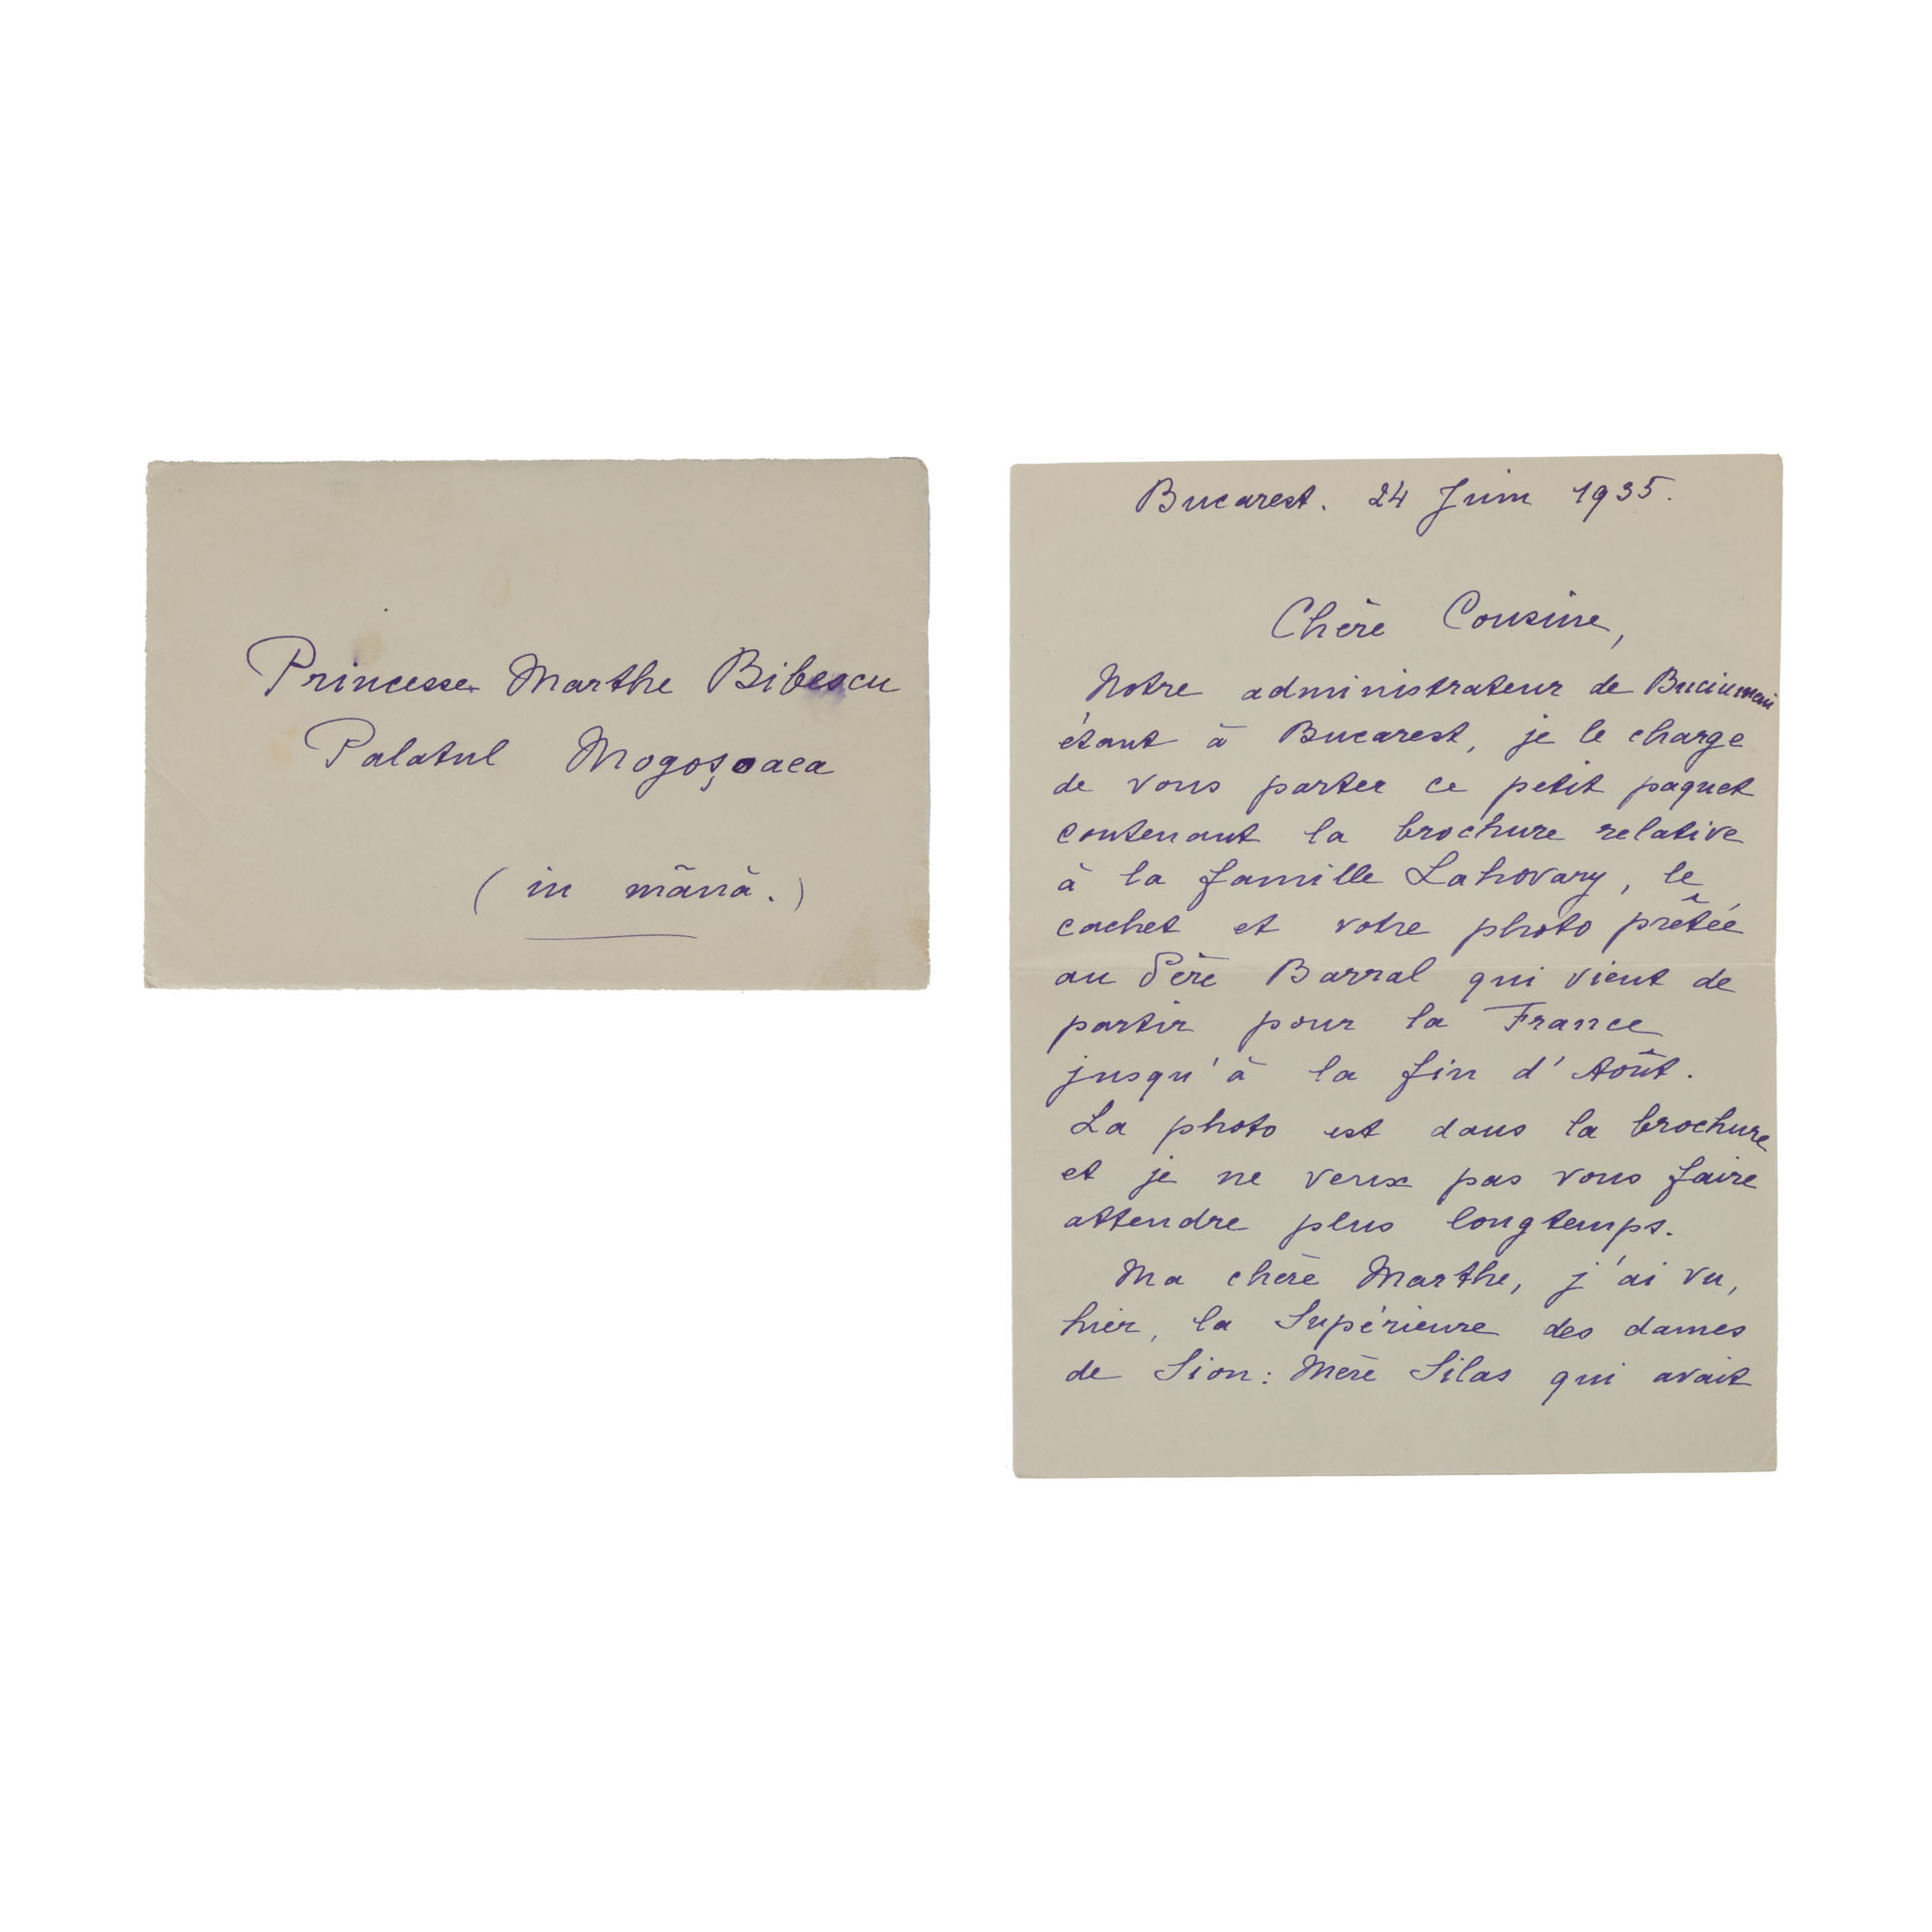 Princesse Marthe Bibescu
Palatul Mogoșoaea
(in mână.)
Bucarest. 24 Juin 1935.
Chère Cousine,
Notre administrateur de Buciumeni
étant à Bucarest, je le charge
de vous porter ce petit paquet
contenant la brochure relative
à la famille Lahovary, le
cachet et votre photo prêtée
au Père Barral qui vient de
partir pour la France
jusqu'à la fin d'Août.
La photo est dans la brochure
et je ne veux pas vous faire
attendre plus longtemps.
Ma chère Marthe, j'ai vu,
hier, la Supérieure des dames
de Sion: Mère Silas qui avait